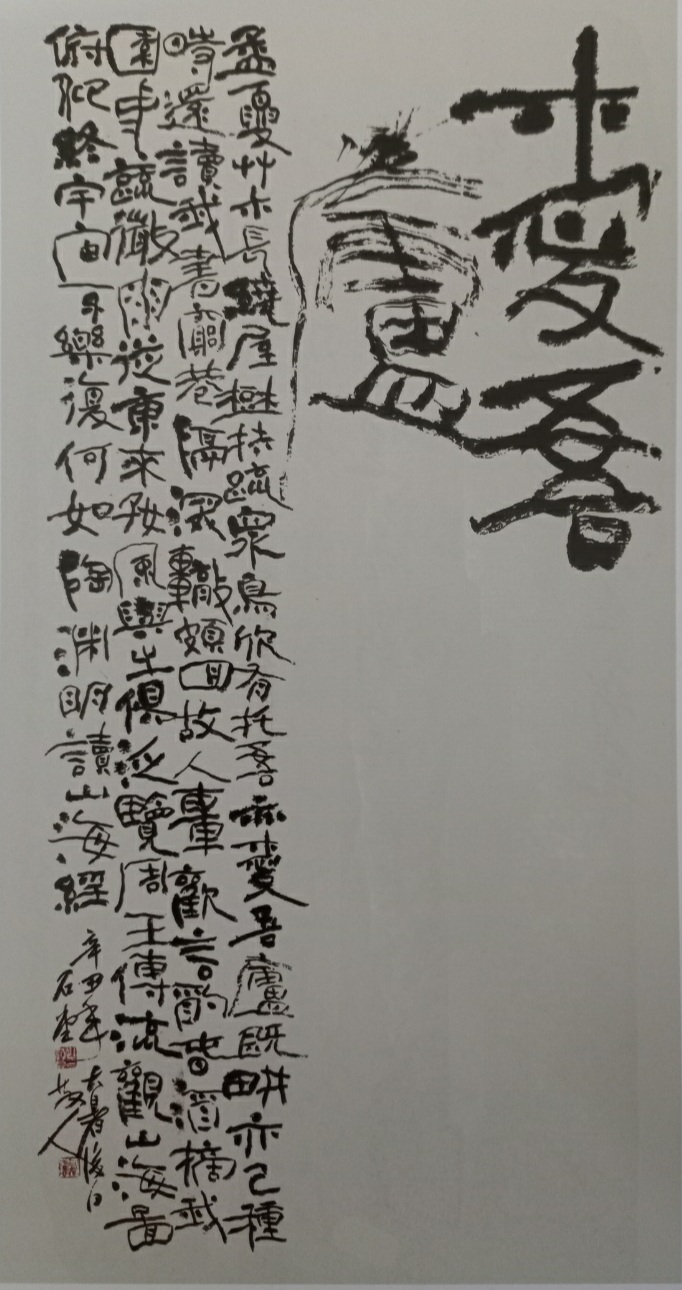 愛吾
廬
孟夏艸木長繞屋樹扶疏眾鳥欣有托吾亦愛吾廬既畊亦已種
時還讀我書窮巷隔深轍頗回故人車歡言酌春酒摘我
園中蔬微雨從東來好風與之俱泛覽周王傳流觀山海圖
俯仰終宇宙不樂復何如陶淵明讀山海經
辛丑年大暑後日
石堂散人